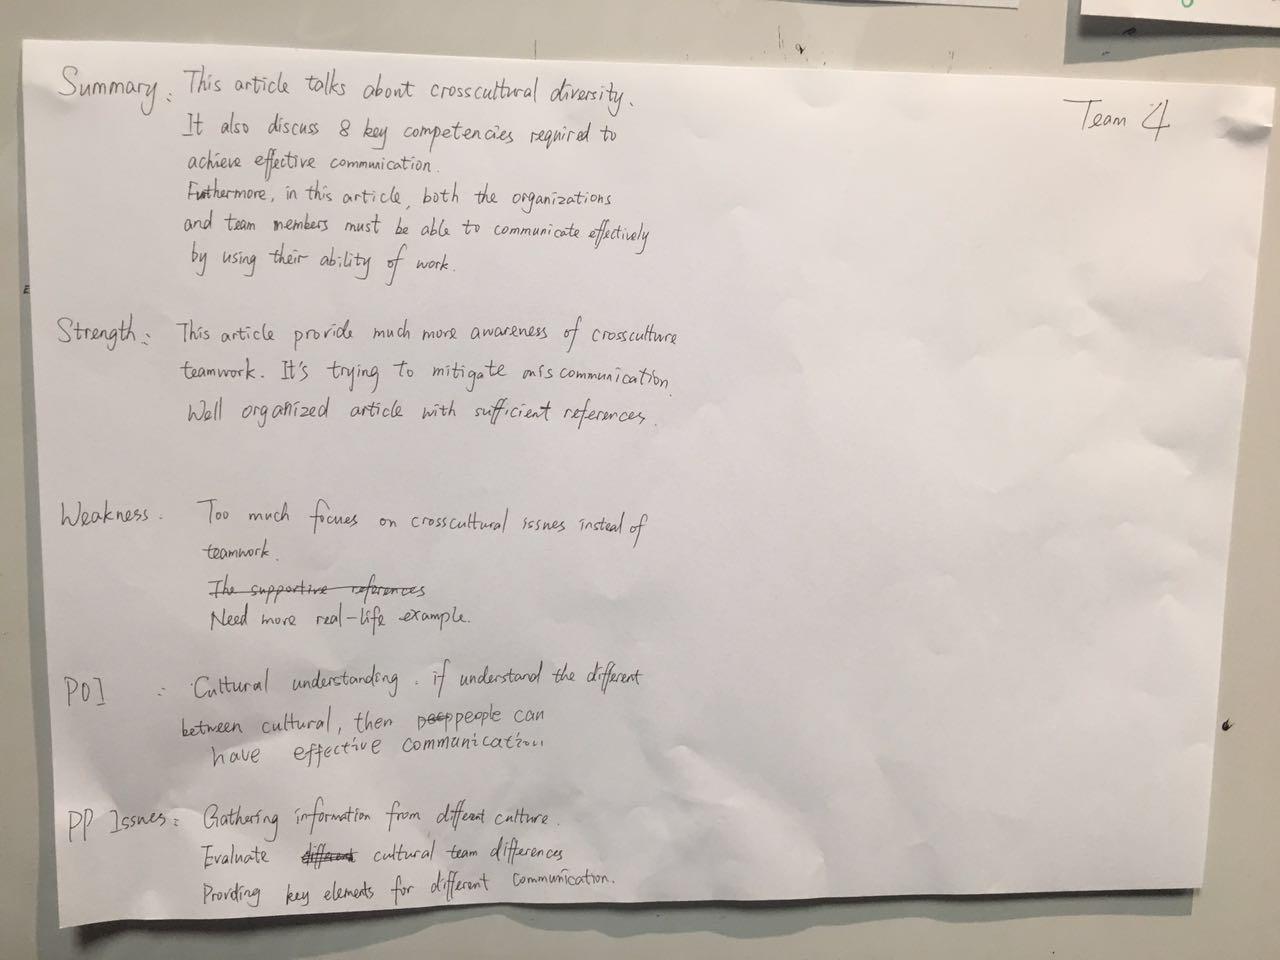 Team 4
Summary: This article talks about crosscultural diversity.
It also discuss 8 key competencies required to
achieve effective communication.
Futhermore, in this article, both the organizations
and team members must be able to communicate effectively
by using their ability of work.
Strength: This article provide much more awareness of crossculture
teamwork. It's trying to mitigate miscommunication.
Well organized article with sufficient references.
Weakness. Too much focues on crosscultural issues insteal of
teamwork.
The supportive references
Need more real-life example.
POI : Cultural understanding. if understand the different
between cultural, then people can
have effective communication
PP Issues: Gathering information from different culture.
Evaluate different cultural team differences
Provding key elements for different communication.